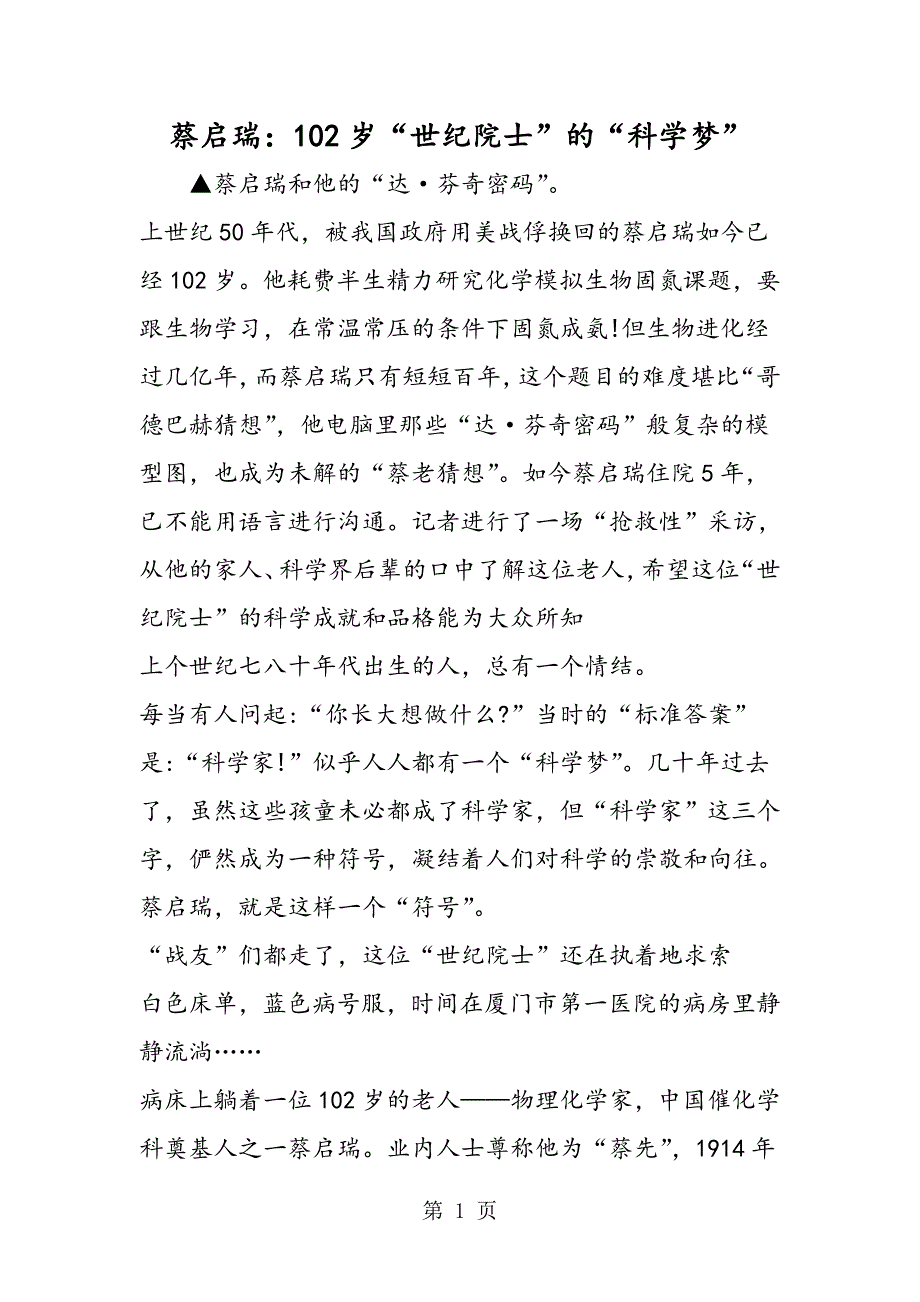 蔡启瑞：102岁“世纪院士”的“科学梦”
▲蔡启瑞和他的“达·芬奇密码”。
上世纪50年代，被我国政府用美战俘换回的蔡启瑞如今已
经102岁。他耗费半生精力研究化学模拟生物固氮课题，要
跟生物学习，在常温常压的条件下固氮成氨!但生物进化经
过几亿年,而蔡启瑞只有短短百年,这个题目的难度堪比“哥
德巴赫猜想”，他电脑里那些“达·芬奇密码”般复杂的模
型图，也成为未解的“蔡老猜想”。如今蔡启瑞住院5年，
已不能用语言进行沟通。记者进行了一场“抢救性”采访，
从他的家人、科学界后辈的口中了解这位老人,希望这位“世
纪院士”的科学成就和品格能为大众所知
上个世纪七八十年代出生的人，总有一个情结。
每当有人问起:“你长大想做什么?”当时的“标准答案”
是:“科学家!”似乎人人都有一个“科学梦”。几十年过去
了，虽然这些孩童未必都成了科学家，但“科学家”这三个
字，俨然成为一种符号，凝结着人们对科学的崇敬和向往。
蔡启瑞，就是这样一个“符号”。
“战友”们都走了，这位“世纪院士”还在执着地求索
白色床单，蓝色病号服，时间在厦门市第一医院的病房里静
静流淌……
病床上躺着一位102岁的老人——物理化学家，中国催化学
科奠基人之一蔡启瑞。业内人士尊称他为“蔡先”，1914年
第 1 页